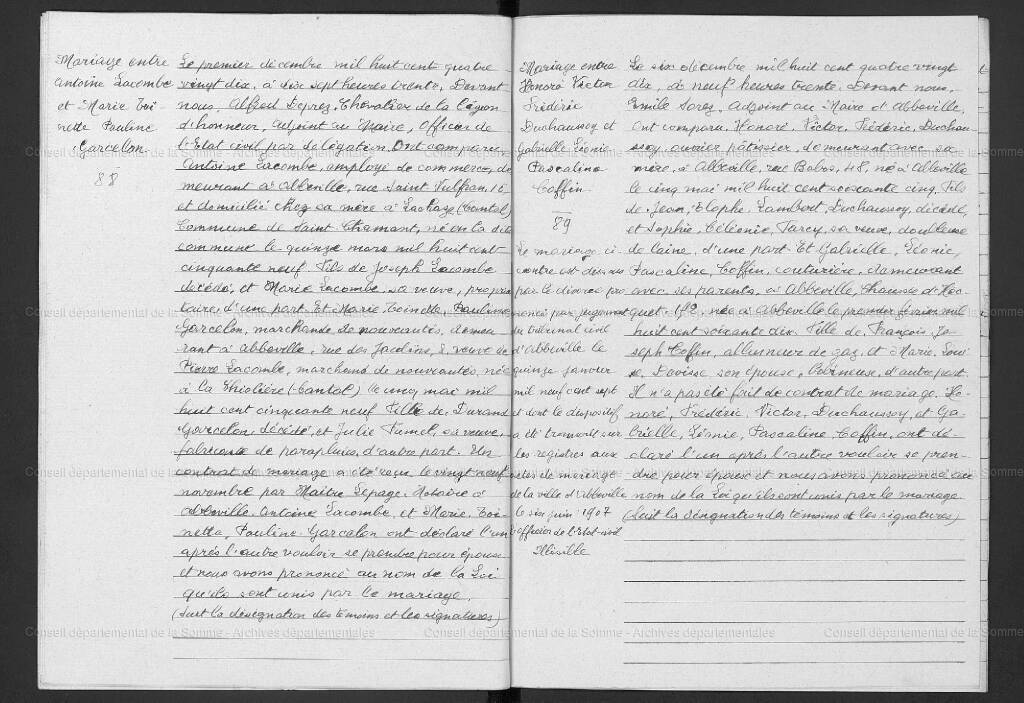 Mariage entre
Antoine Lacombe
et Marie Toi
nette Pauline
Garcelon
88
Le premier décembre mil huit cent quatre
vingt dix, à dix sept heures trente, Devant
nous, Alfred Deprez, Chevalier de la légion
d'honneur, adjoint au Maire, Officier de
l'Etat civil par délégation. Ont comparu
Antoine Lacombe, employé de commerce, de
meurant à Abbeville, rue Saint Vulfran, 10
et domicilié chez sa mère à Lachaze (Cantal)
Commune de Saint Chamant, né en la dite
commune le quinze mars mil huit cent
cinquante neuf. Fils de Joseph Lacombe
décédé, et Marie Lacombe, sa veuve, proprié
taire, d'une part. Et Marie Toinette, Pauline
Garcelon, marchande de nouveautés, demeu
rant à Abbeville, rue des Jacobins, 2, veuve de
Pierre Lacombe, marchand de nouveautés, née
à la (Cantal) le cinq mai mil
huit cent cinquante neuf Fille de, Durand
Garcelon, décédé, et Julie sa veuve,
fabricante de parapluies, d'autre part. Un
contrat de mariage a été reçu le vingt neuf
novembre par Maître Lepage, Notaire à
Abbeville. Antoine Lacombe, et Marie, Toi
nette, Pauline Garcelon ont déclaré l'un
après l'autre vouloir se prendre pour époux
et nous avons prononcé au nom de la Loi
qu'ils sont unis par le mariage.
(Suit la désignation des témoins et les signatures)
Mariage entre
Honoré Victor
Frédéric
Duchaussoy et
Gabrielle Léonie
Pascaline
Coffin
89
Le mariage ci
contre est dissous
par le divorce pro
noncé par jugement
du tribunal civil
d'Abbeville le
quinze janvier
mil neuf cent sept
et dont le dispositif
a été transcrit sur
les registres aux
actes de mariage
de la ville d'Abbeville
le six juin 1907
l'officier de l'Etat-civil
Le six décembre mil huit cent quatre vingt
dix, à neuf heures trente. Devant nous,
Emile Sorez, Adjoint au Maire d'Abbeville,
Ont comparu, Honoré, Victor, Frédéric, Duchau
ssoy, ouvrier pâtissier, demeurant avec sa
mère, à Abbeville, rue 48, né à Abbeville
le cinq mai mil huit cent soixante cinq. Fils
de Jean, Lambert, Duchaussoy, décédé,
et Sophie, sa veuve, doubleuse
de laine, d'une part. Et Gabrielle, Léonie,
Pascaline, Coffin, couturière, demeurant
avec ses parents, à Abbeville, Chaussée d'Hoc
quet, 192, née à Abbeville le premier février mil
huit cent soixante dix. Fille de, François, Jo
seph Coffin, allumeur de gaz, et Marie, Loui
se, son épouse, bobineuse, d'autre part.
Il n'a pas été fait de contrat de mariage. Ho
noré, Frédéric, Victor, Duchaussoy, et Ga
brielle, Léonie, Pascaline, Coffin, ont dé
claré l'un après l'autre vouloir se pren
dre pour époux et nous avons prononcé au
nom de la Loi qu'ils sont unis par le mariage
(Suit la désignation des témoins et les signatures)
Conseil départemental de la Somme - Archives départementales